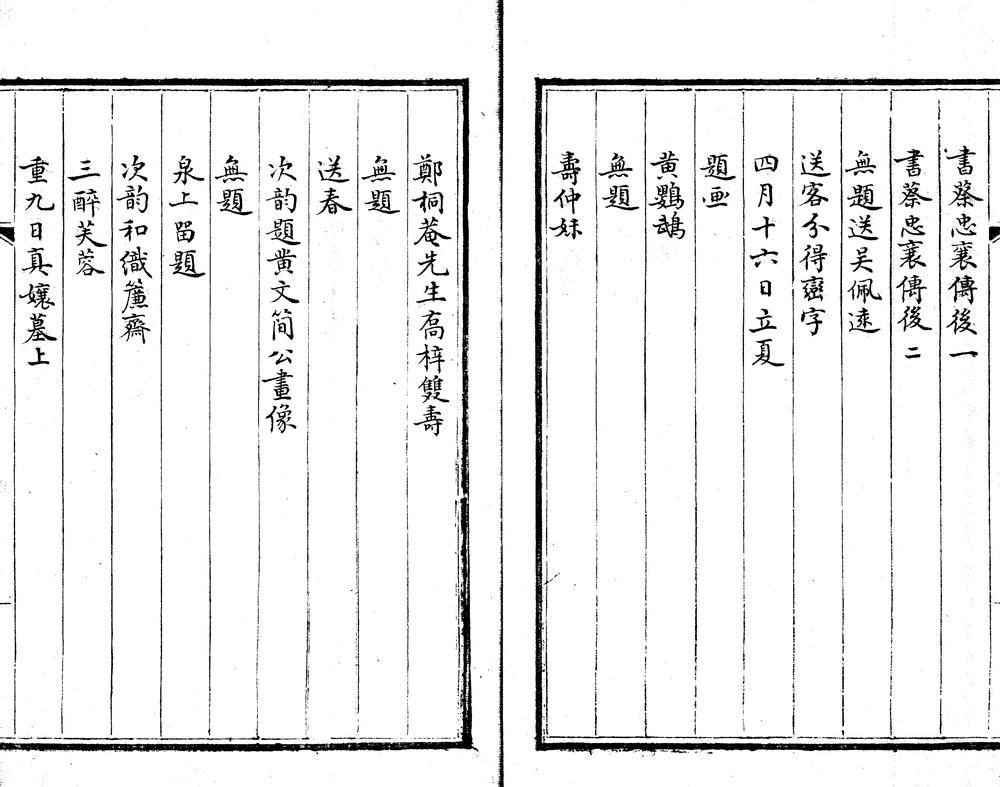 書蔡忠襄傳後一
書蔡忠襄傳後二
無題送吴佩遠
送客分得蜜字
四月十六日立夏
題画
黄鸚鵡
無題
壽仲妹
鄭桐菴先生高梓雙壽
無題
送春
次韵題黄文简公畫像
無題
泉上留題
次韵和織簾齋
三醉芙蓉
重九日真孃墓上